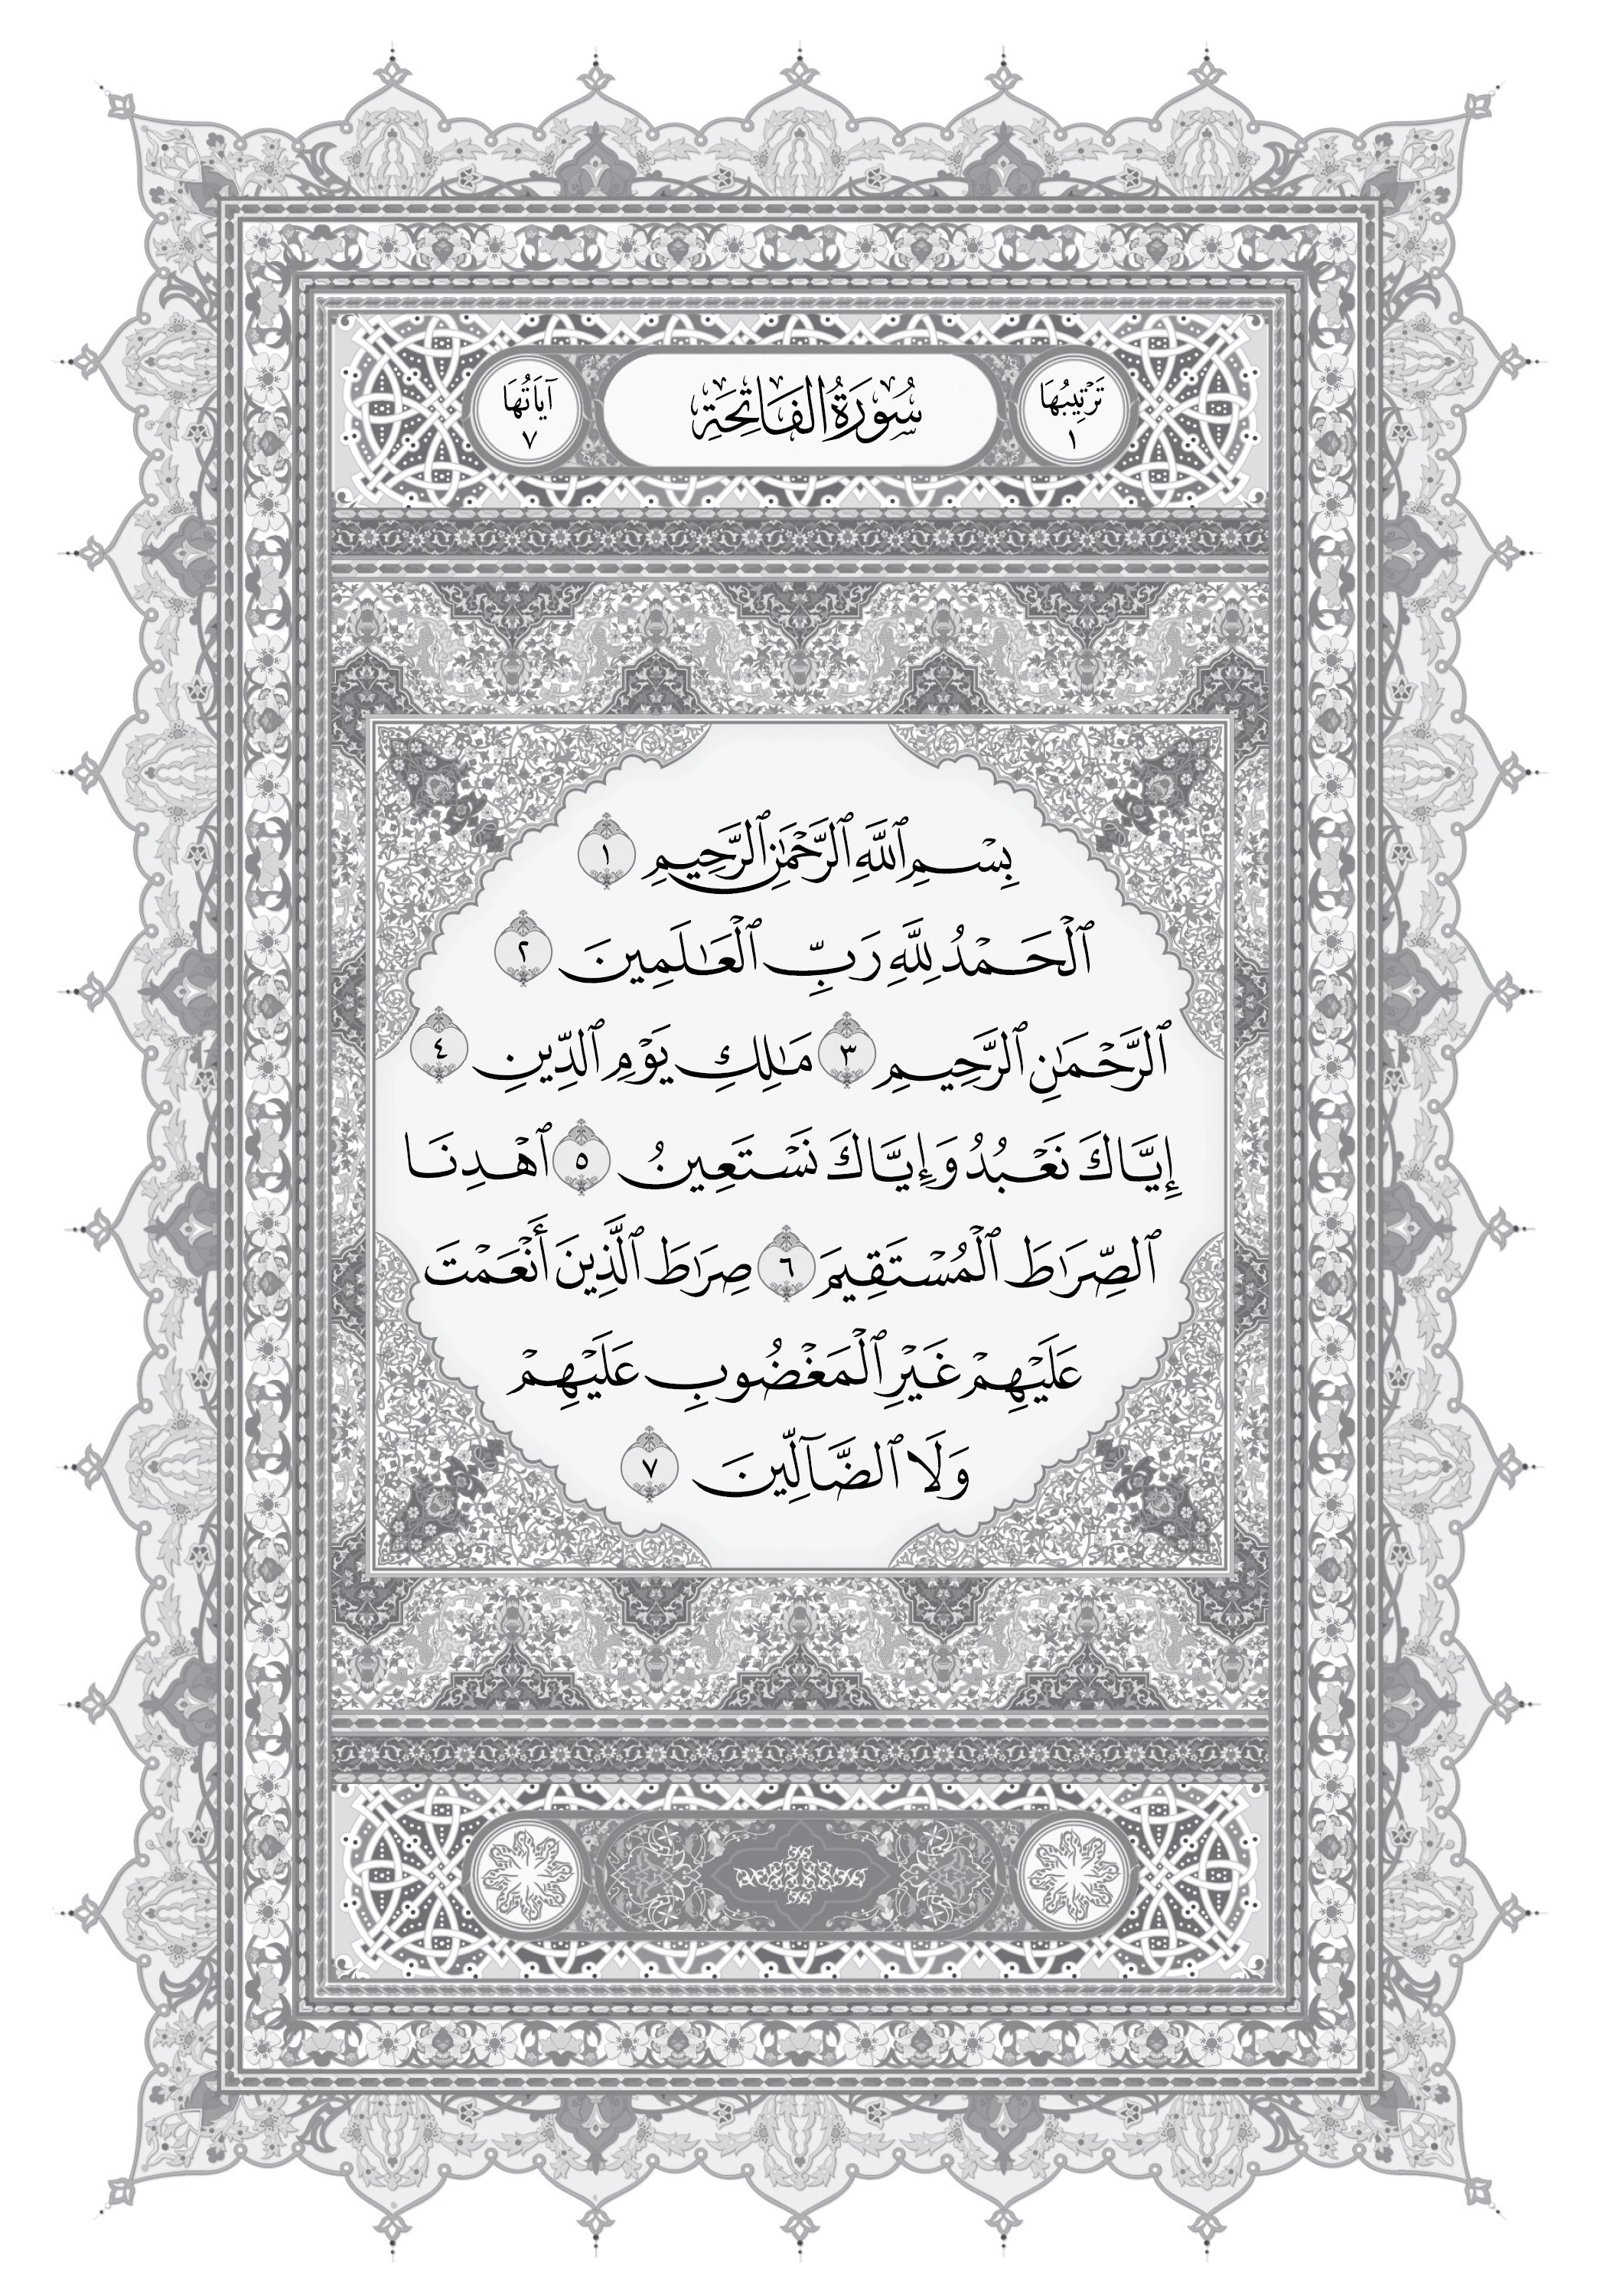 تَرْتِيبُهَا ١ سُورَةُ الفَاتِحَةِ آيَاتُهَا ٧
بِسْمِ ٱللَّهِ ٱلرَّحْمَٰنِ ٱلرَّحِيمِ ١
ٱلْحَمْدُ لِلَّهِ رَبِّ ٱلْعَٰلَمِينَ ٢
ٱلرَّحْمَٰنِ ٱلرَّحِيمِ ٣ مَٰلِكِ يَوْمِ ٱلدِّينِ ٤
إِيَّاكَ نَعْبُدُ وَإِيَّاكَ نَسْتَعِينُ ٥ ٱهْدِنَا
ٱلصِّرَٰطَ ٱلْمُسْتَقِيمَ ٦ صِرَٰطَ ٱلَّذِينَ أَنْعَمْتَ
عَلَيْهِمْ غَيْرِ ٱلْمَغْضُوبِ عَلَيْهِمْ
وَلَا ٱلضَّآلِّينَ ٧